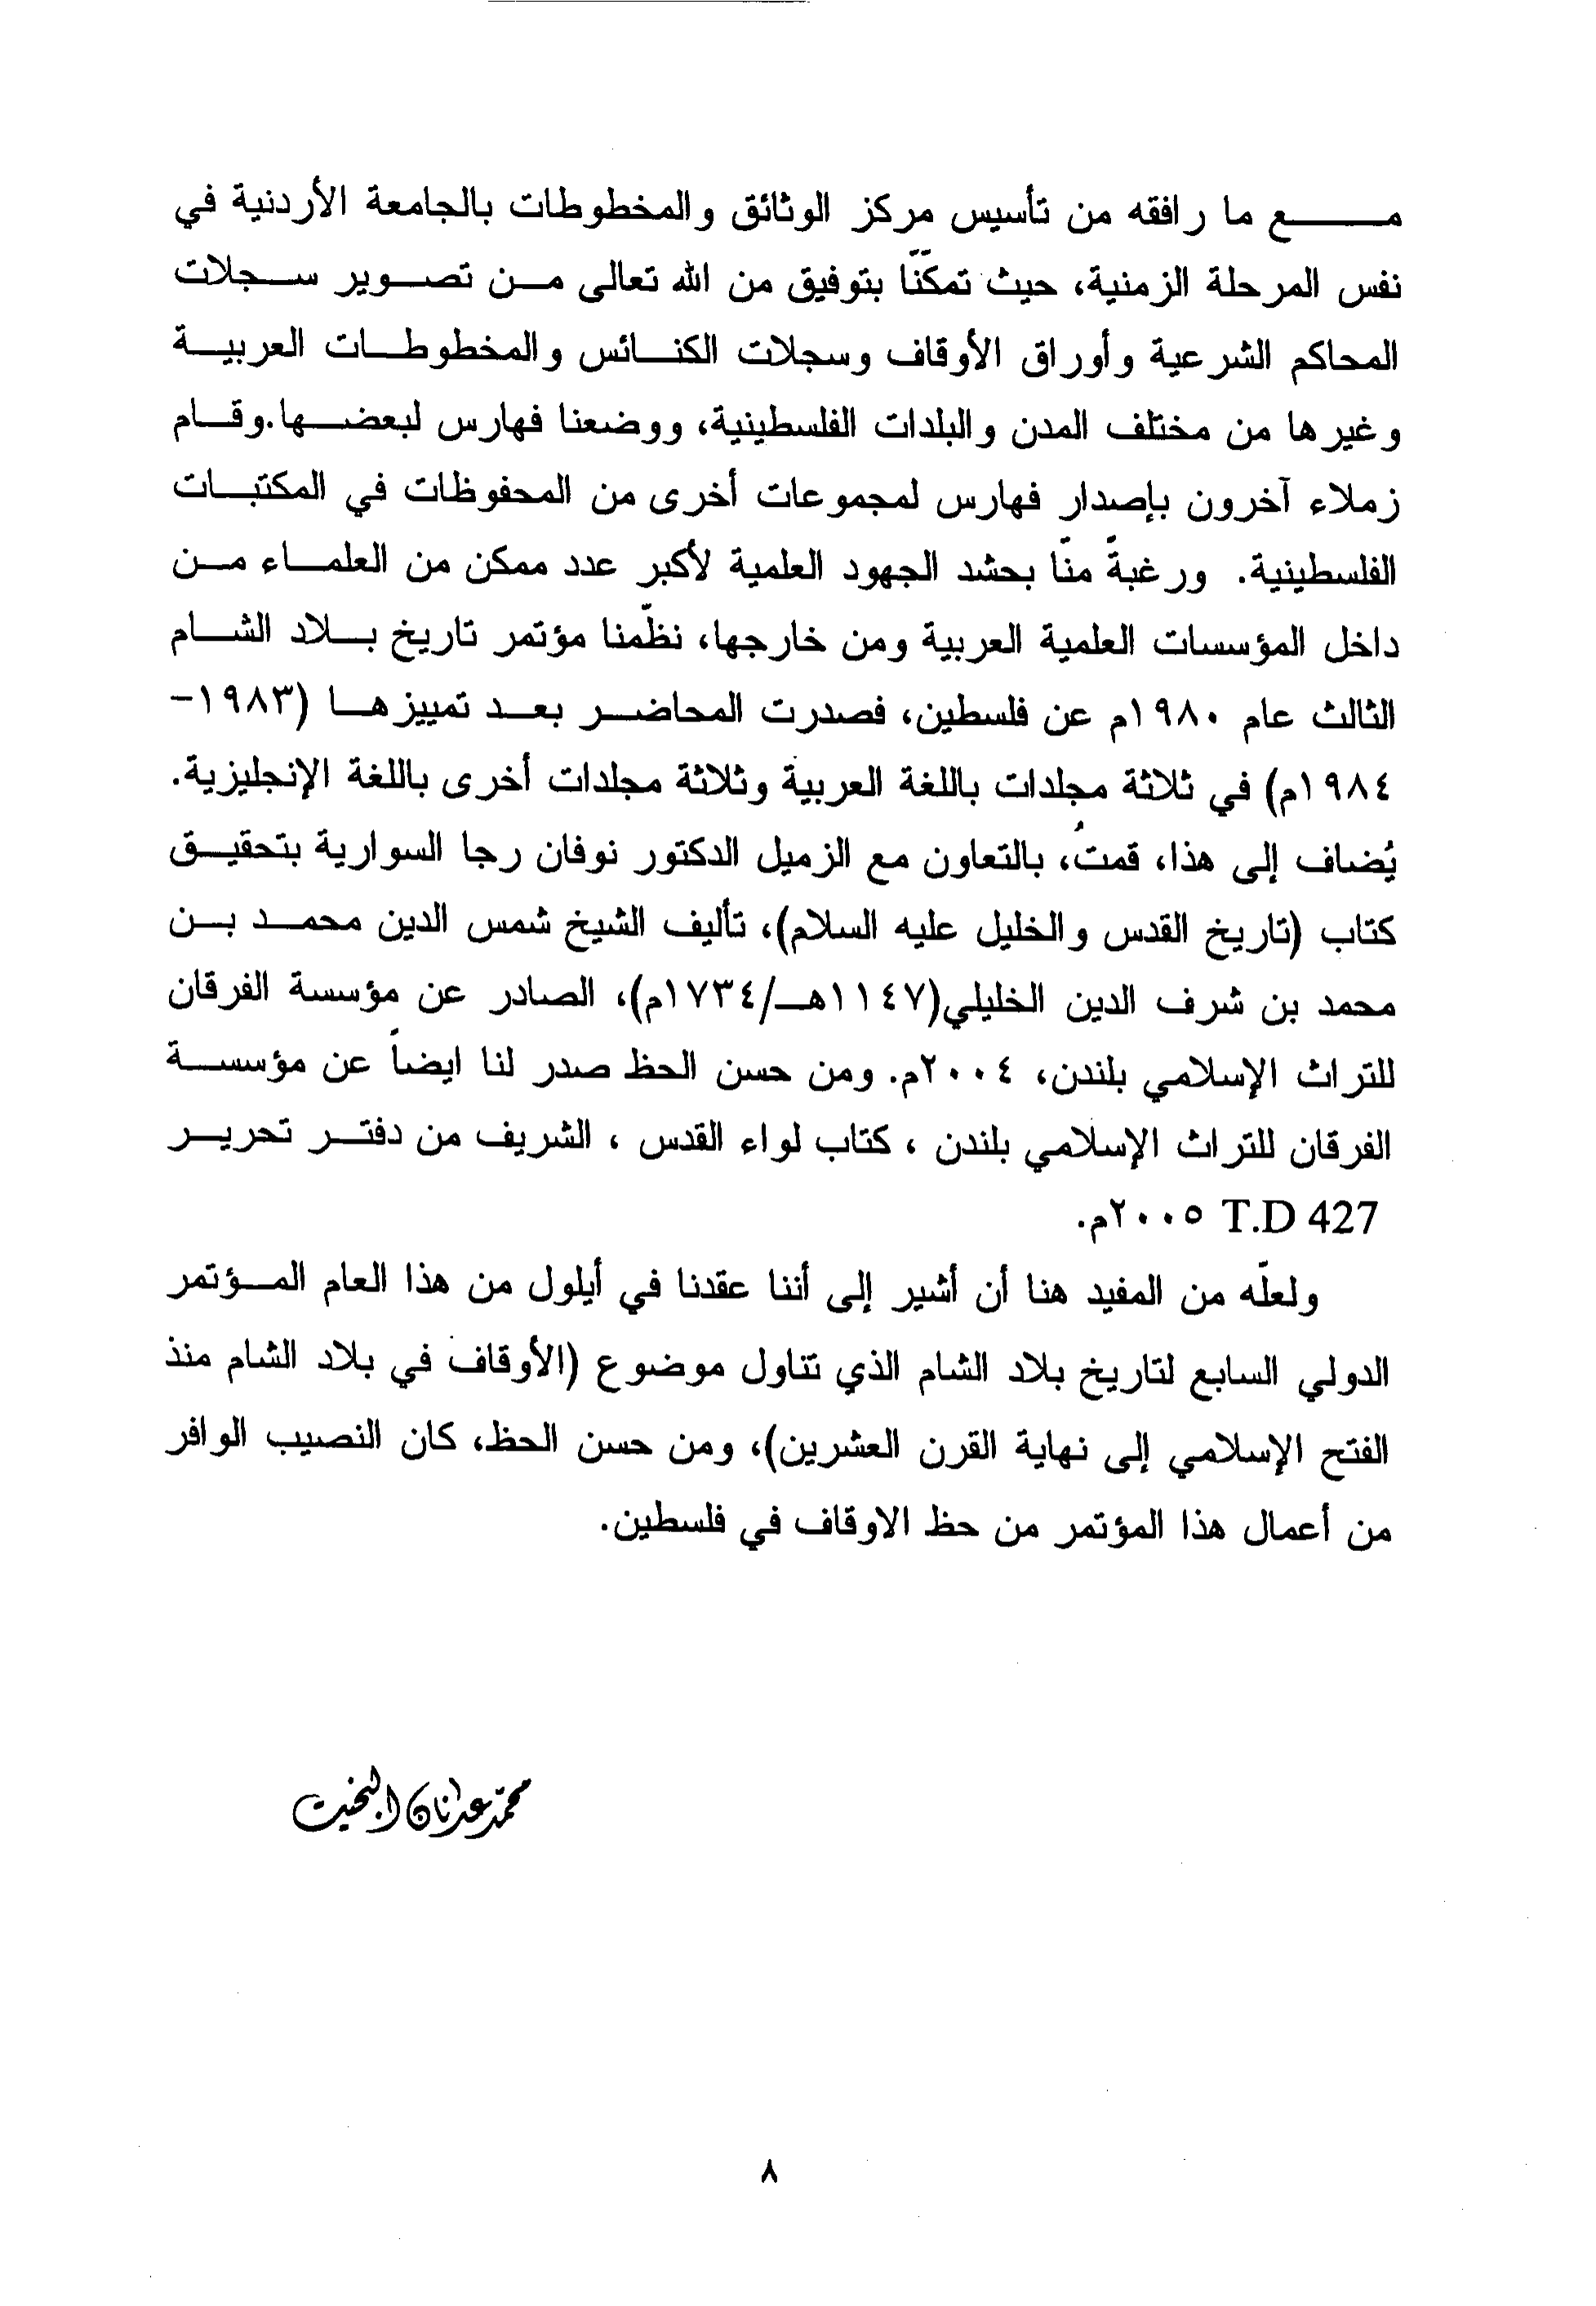 مع ما رافقه من تأسيس مركز الوثائق والمخطوطات بالجامعة الأردنية في
نفس المرحلة الزمنية، حيث تمكنّا بتوفيق من الله تعالى من تصوير سجلات
المحاكم الشرعية وأوراق الأوقاف وسجلات الكنائس والمخطوطات العربية
وغيرها من مختلف المدن والبلدات الفلسطينية، ووضعنا فهارس لبعضها.وقام
زملاء آخرون بإصدار فهارس لمجموعات أخرى من المحفوظات في المكتبات
الفلسطينية. ورغبةً منّا بحشد الجهود العلمية لأكبر عدد ممكن من العلماء من
داخل المؤسسات العلمية العربية ومن خارجها، نظّمنا مؤتمر تاريخ بلاد الشام
الثالث عام ١٩٨٠م عن فلسطين، فصدرت المحاضر بعد تمييزها (١٩٨٣-
١٩٨٤م) في ثلاثة مجلدات باللغة العربية وثلاثة مجلدات أخرى باللغة الإنجليزية.
يُضاف إلى هذا، قمتُ، بالتعاون مع الزميل الدكتور نوفان رجا السوارية بتحقيق
كتاب (تاريخ القدس والخليل عليه السلام)، تأليف الشيخ شمس الدين محمد بن
محمد بن شرف الدين الخليلي(١١٤٧هـ/١٧٣٤م)، الصادر عن مؤسسة الفرقان
للتراث الإسلامي بلندن، ٢٠٠٤م. ومن حسن الحظ صدر لنا ايضاً عن مؤسسة
الفرقان للتراث الإسلامي بلندن ، كتاب لواء القدس ، الشريف من دفتر تحرير
T.D 427 ٢٠٠٥م.
ولعلّه من المفيد هنا أن أشير إلى أننا عقدنا في أيلول من هذا العام المؤتمر
الدولي السابع لتاريخ بلاد الشام الذي تناول موضوع (الأوقاف في بلاد الشام منذ
الفتح الإسلامي إلى نهاية القرن العشرين)، ومن حسن الحظ، كان النصيب الوافر
من أعمال هذا المؤتمر من حظ الاوقاف في فلسطين.
محمد عدنان البخيت
٨